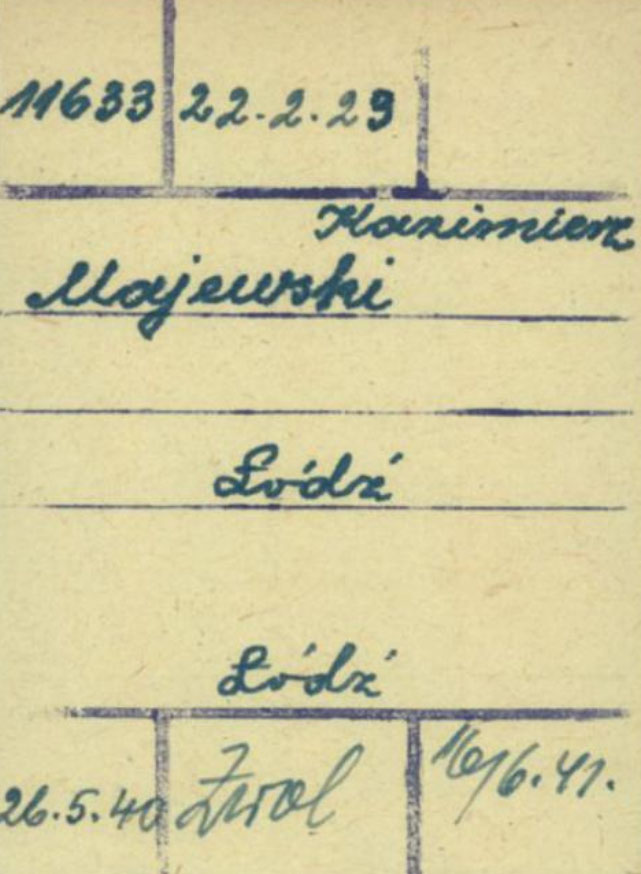 11633 22.2.29
Kazimierz
Majewski
Łódź
Łódź
26.5.40 Zwol 16/6.41.